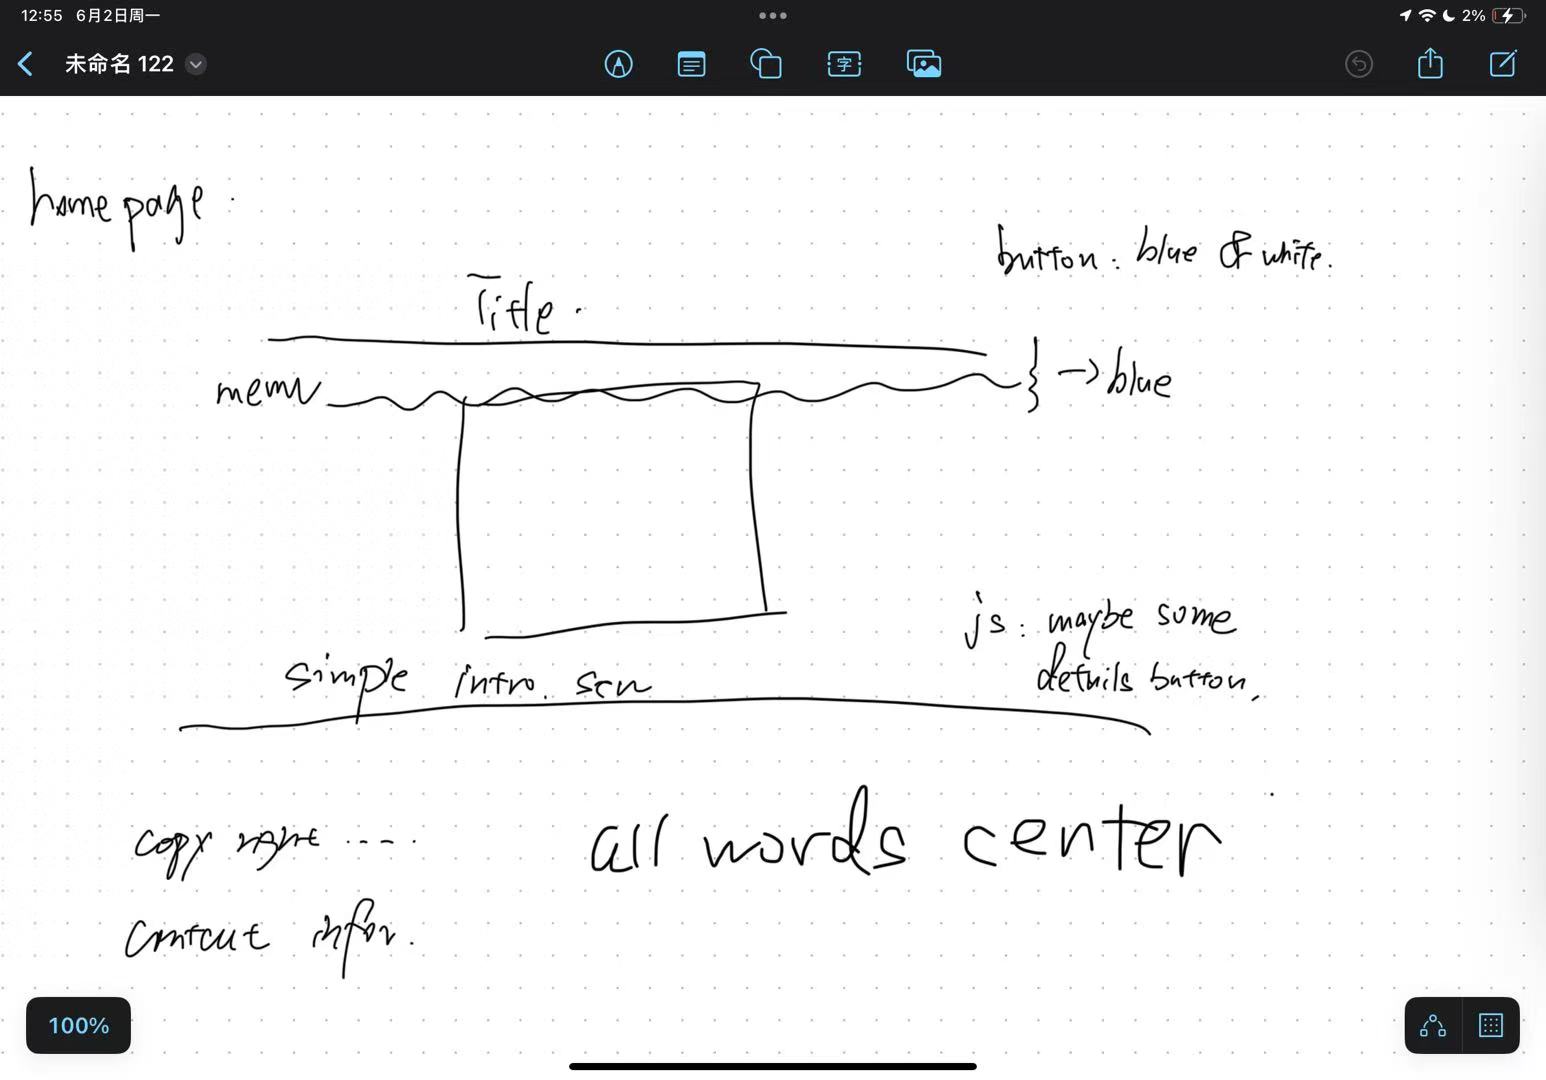 12:55 6月2日周一
2%
未命名 122
字
home page.
button: blue & white.
Title.
menu
} → blue
js: maybe some
details button,
simple intro. sen
copy right ----.
contact infor.
all words center
100%